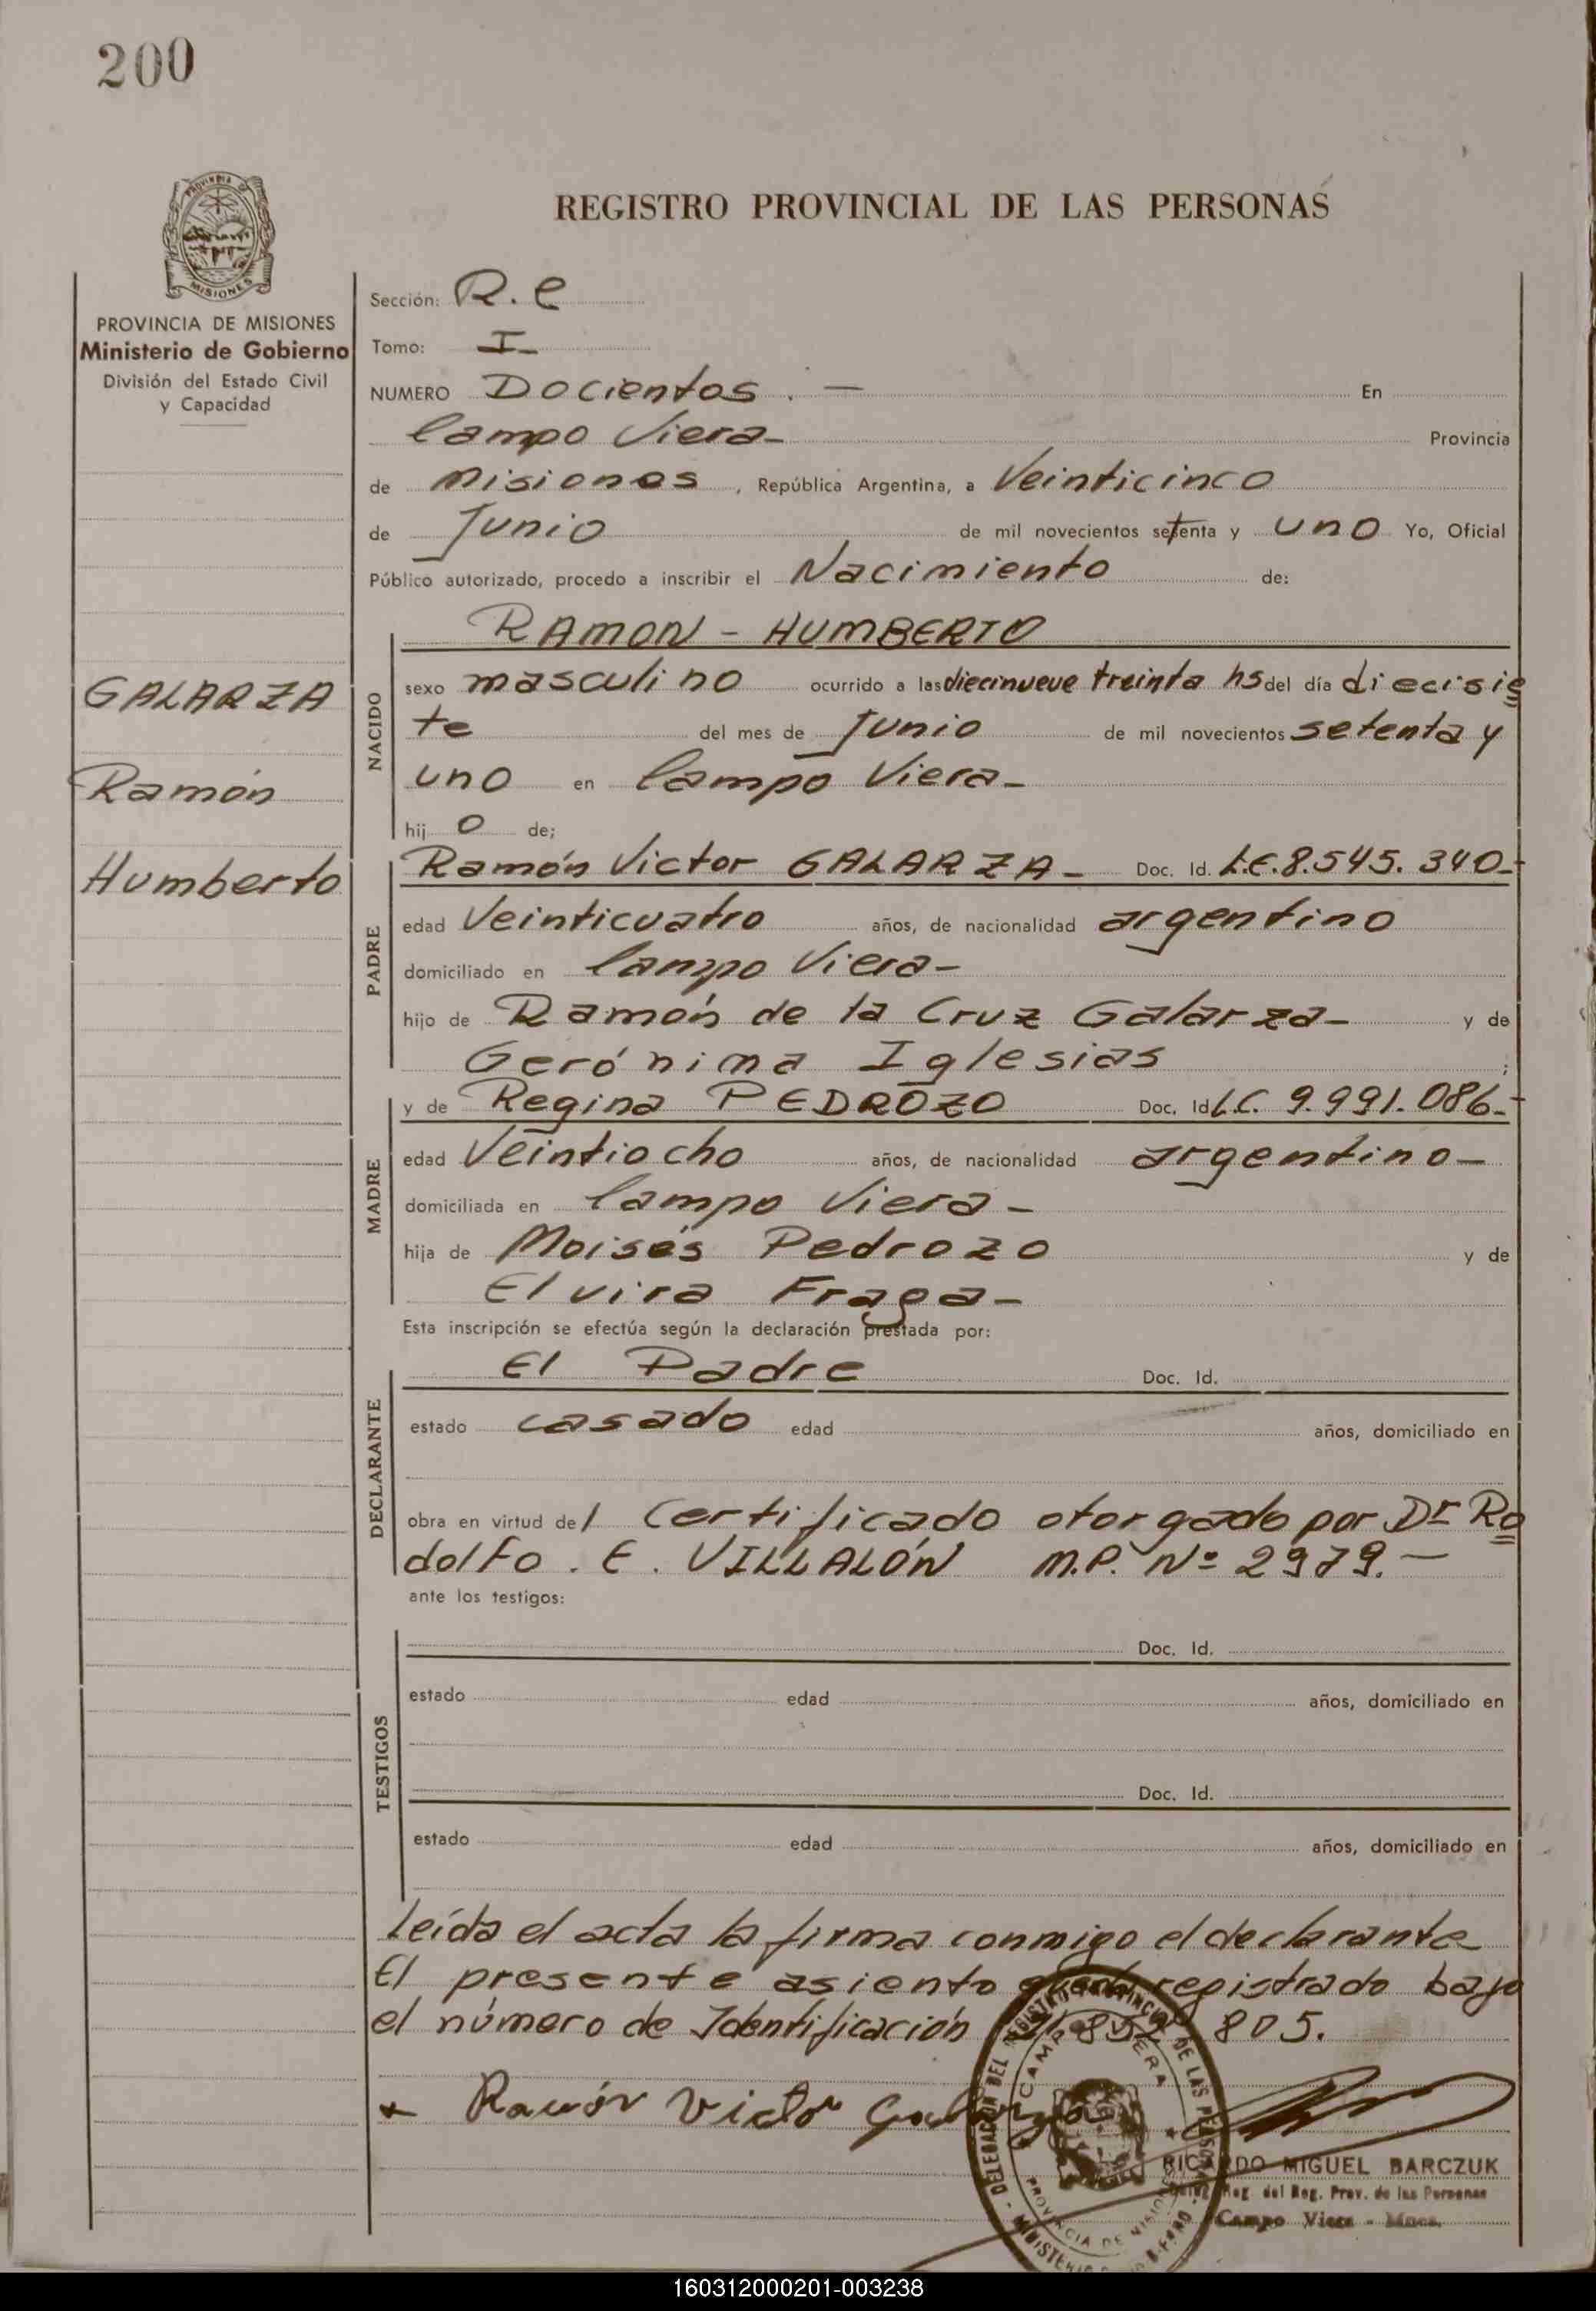 200
PROVINCIA DE MISIONES
PROVINCIA DE MISIONES
Ministerio de Gobierno
División del Estado Civil
y Capacidad
GALARZA
Ramón
Humberto
REGISTRO PROVINCIAL DE LAS PERSONAS
Sección: R. C
Tomo: I
NUMERO Docientos . — En
Campo Viera- Provincia
de Misiones , República Argentina, a Veinticinco
de Junio de mil novecientos setenta y uno Yo, Oficial
Público autorizado, procedo a inscribir el Nacimiento de:
NACIDO
RAMON - HUMBERTO
sexo masculino ocurrido a las diecinueve treinta hs del día diecisie
te del mes de Junio de mil novecientos setenta y
uno en Campo Viera-
hij o de;
PADRE
Ramón Victor GALARZA- Doc. Id. L.E.8.545.340-
edad Veinticuatro años, de nacionalidad argentino
domiciliado en Campo Viera-
hijo de Ramón de la Cruz Galarza- y de
Gerónima Iglesias ;
MADRE
y de Regina PEDROZO Doc. Id L.C. 9.991.086-
edad Veintiocho años, de nacionalidad argentino-
domiciliada en Campo Viera-
hija de Moisés Pedrozo y de
Elvira Fraga-
Esta inscripción se efectúa según la declaración prestada por:
DECLARANTE
El Padre Doc. Id.
estado casado edad años, domiciliado en
obra en virtud del Certificado otorgado por Dr Ro
dolfo . E . VILLALÓN M.P. Nº 2979.—
ante los testigos:
TESTIGOS
Doc. Id.
estado edad años, domiciliado en
Doc. Id.
estado edad años, domiciliado en
Leída el acta la firma conmigo el declarante
El presente asiento queda registrado bajo
el número de Identificación 21.852.805.
Ramón Victor Galarza
DELEGACION DEL REGISTRO PROVINCIAL DE LAS PERSONAS
CAMPO VIERA
PROVINCIA DE MISIONES
RICARDO MIGUEL BARCZUK
Reg. del Reg. Prov. de las Personas
Campo Viera - Mnes.
160312000201-003238